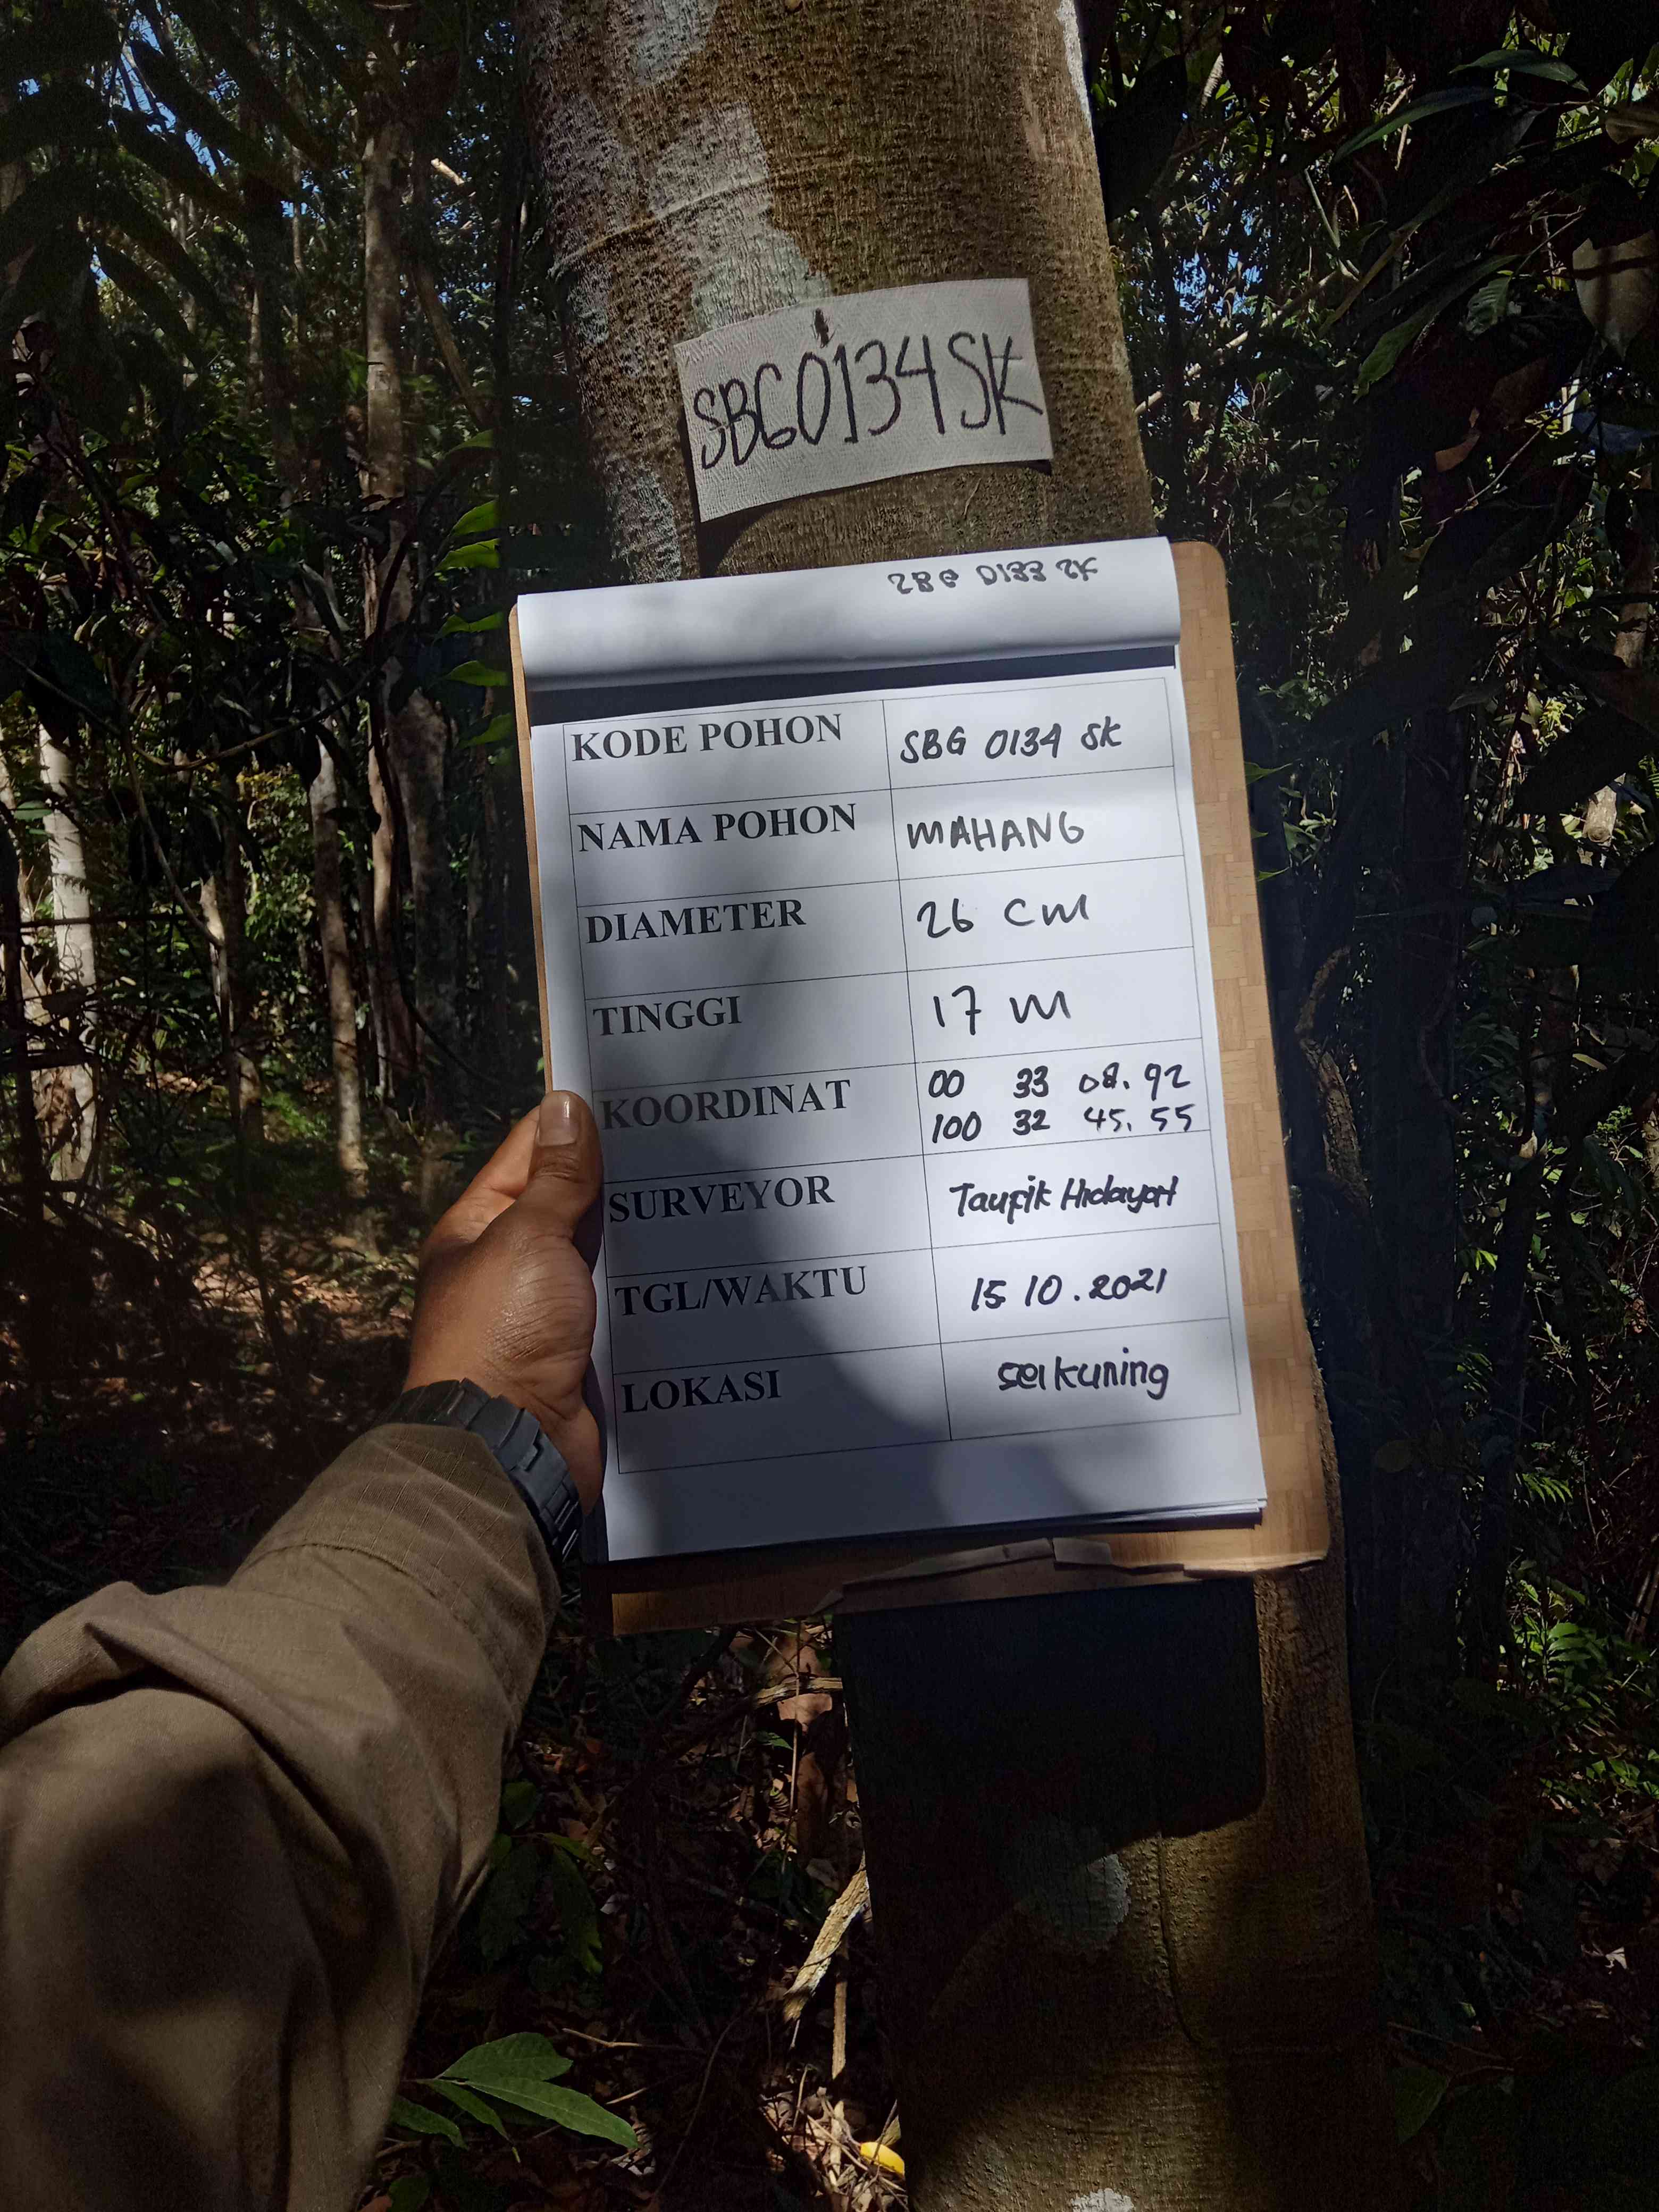 SBG0134SK
SBG 0133 SK
KODE POHON SBG 0134 SK
NAMA POHON MAHANG
DIAMETER 26 cm
TINGGI 17 m
KOORDINAT 00 33 08.92
100 32 45.55
SURVEYOR Taufik Hidayat
TGL/WAKTU 15 10.2021
LOKASI sei kuning